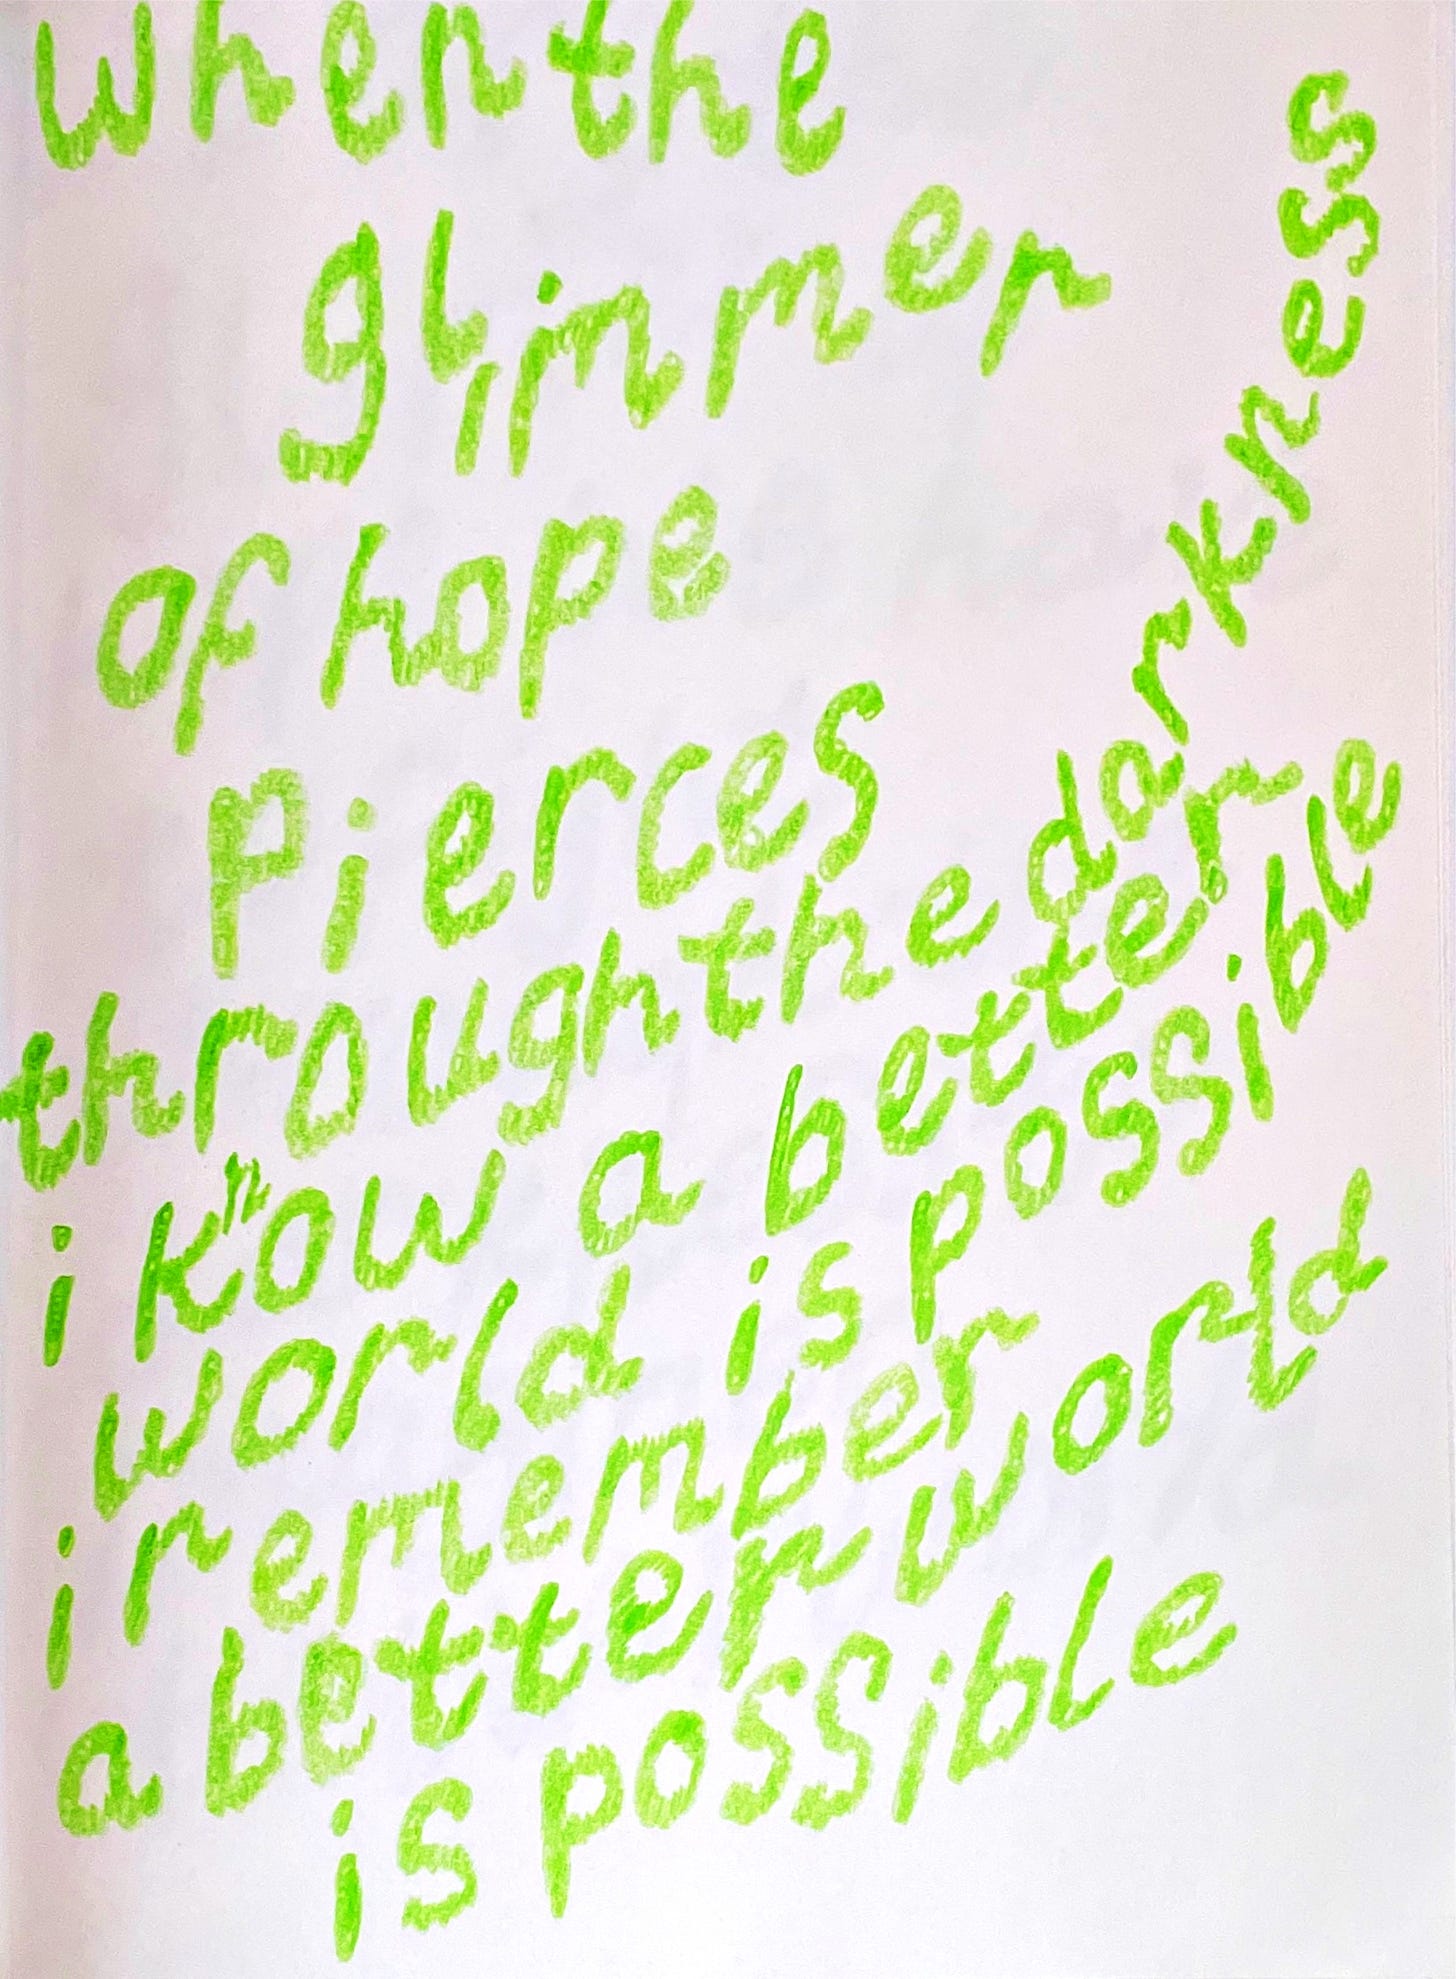 when the
glimmer
of hope
pierces
through the darkness
i know a better
world is possible
i remember
a better world
is possible